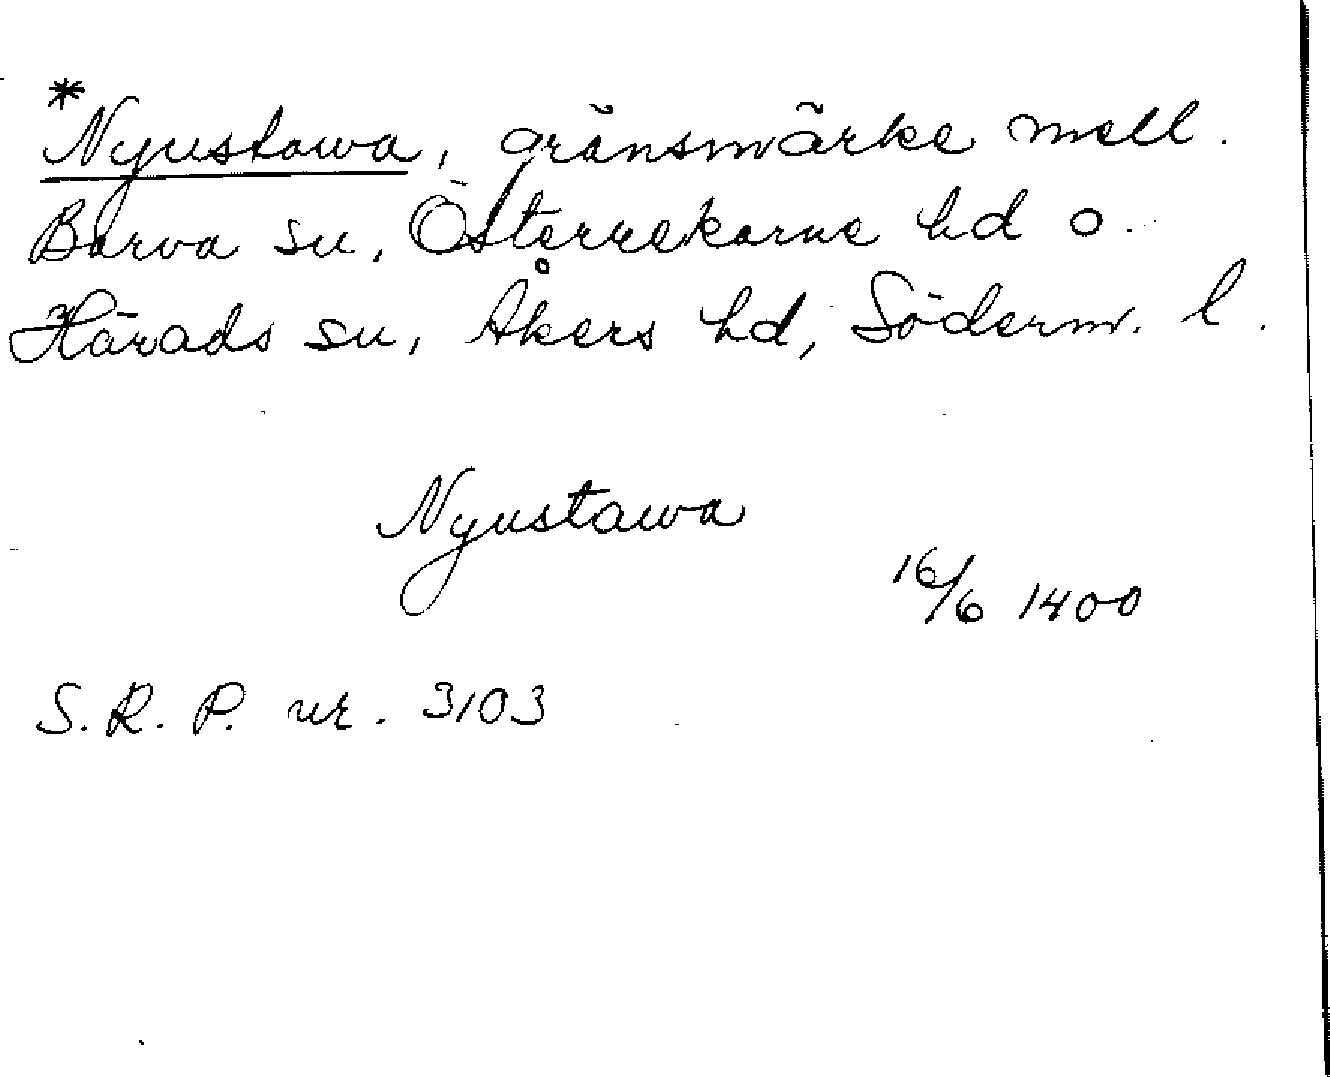 *Nyustawa, gränsmärke mell.
Barva sn, Österrekarne hd o.
Härads sn, Åkers hd, Söderm. l.
Nyustawa
16/6 1400
S. R. P. nr. 3103